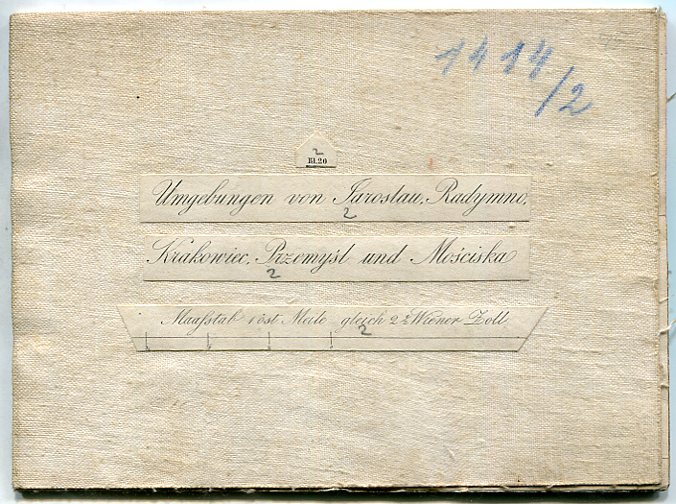 1414/2
2
Bl.20
Umgebungen von Jarostau, Radymno,
2
Krakowiec, Przemyśl und Mościska
2
Maaſstab 1 öst. Meile gleich 2⅔ Wiener Zoll
2